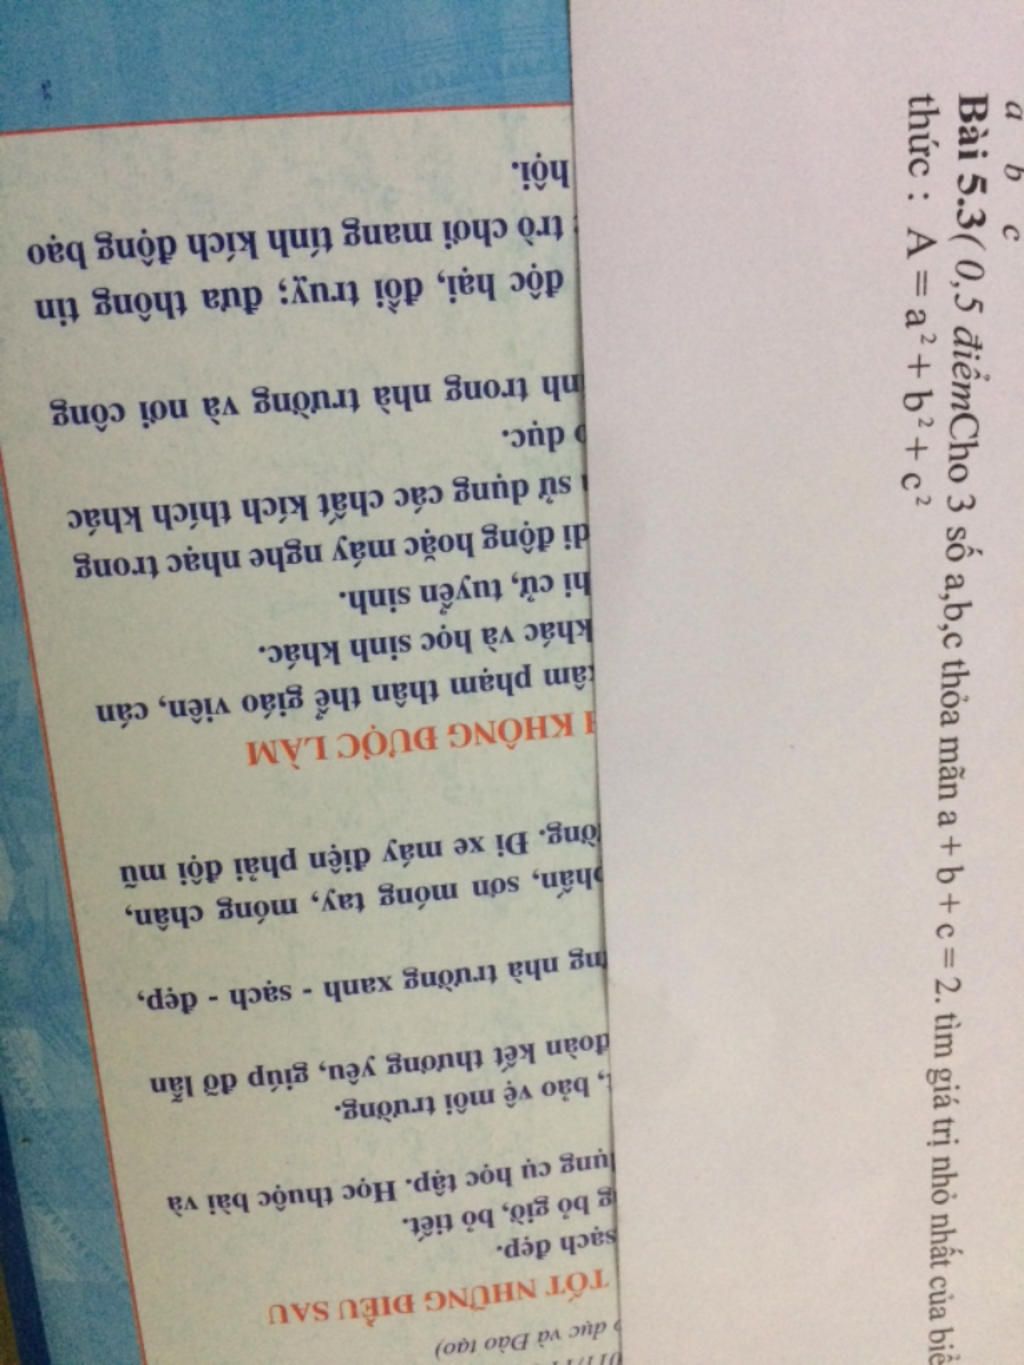 a b c
Bài 5.3( 0,5 điểmCho 3 số a,b,c thỏa mãn a + b + c = 2. tìm giá trị nhỏ nhất của
thức : A = a² + b² + c²
dục và Đào tạo)
TỐT NHỮNG ĐIỀU SAU
sạch đẹp.
bỏ giờ, bỏ tiết.
cụ học tập. Học thuộc bài và
bảo vệ môi trường.
đoàn kết thương yêu, giúp đỡ lẫn
nhà trường xanh - sạch - đẹp,
sơn móng tay, móng chân,
Đi xe máy điện phải đội mũ
KHÔNG ĐƯỢC LÀM
phạm thân thể giáo viên, cán
khác và học sinh khác.
cử, tuyển sinh.
di động hoặc máy nghe nhạc trong
sử dụng các chất kích thích khác
dục.
trong nhà trường và nơi công
độc hại, đồi truỵ; đưa thông tin
trò chơi mang tính kích động bạo
hội.